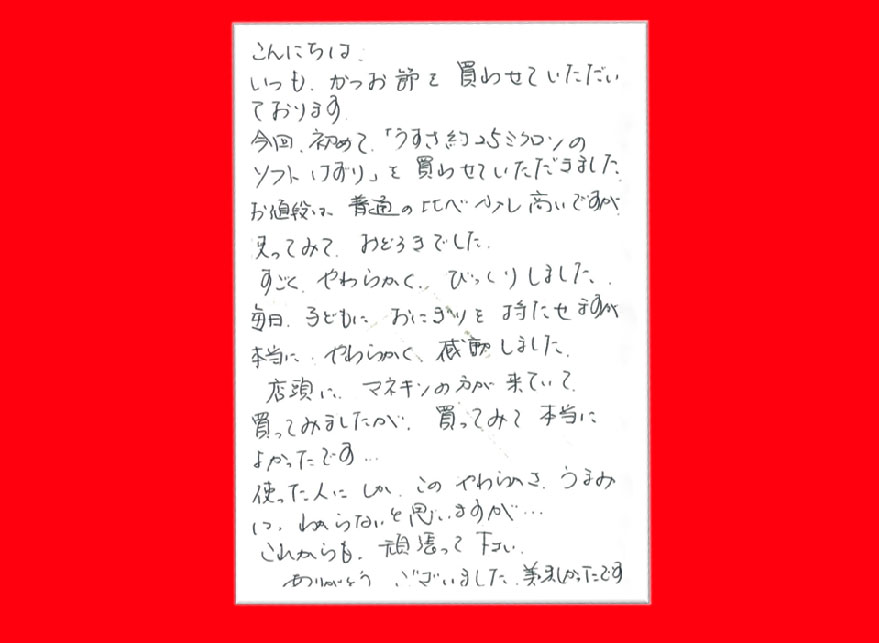 こんにちは.
いつも、かつお節を買わせていただい
ております
今回、初めて、「うすさ約25ミクロンの
ソフトけずり」を買わせていただきました.
お値段は、普通の比べ少し高いですが
買ってみて、おどろきでした.
すごく、やわらかく、びっくりしました、.
毎日、子どもに、おにぎりを持たせますが
本当に、やわらかく、感動しました.
店頭に、マネキンの方が来ていて、
買ってみましたが、買ってみて本当に
よかったです…
使った人にしか、このやわらかさ、うまみ
は、わからないと思いますが…
これからも、頑張って下さい.
ありがとうございました.美味しかったです